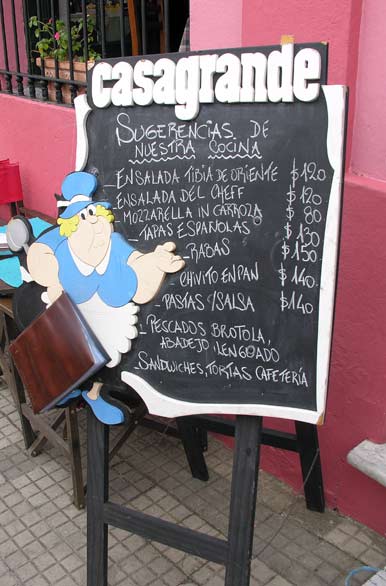 casagrande
SUGERENCIAS DE
NUESTRA COCINA
- ENSALADA TIBIA DE ORIENTE $120
- ENSALADA DEL CHEFF $120
- MOZZARELLA IN CARROZA $80
- TAPAS ESPAÑOLAS $130
- RABAS $150
- CHIVITO EN PAN $140
- PASTAS Y/SALSA $140
- PESCADOS BROTOLA,
ABADEJO, LENGUADO
- SANDWICHES, TORTAS CAFETERÍA